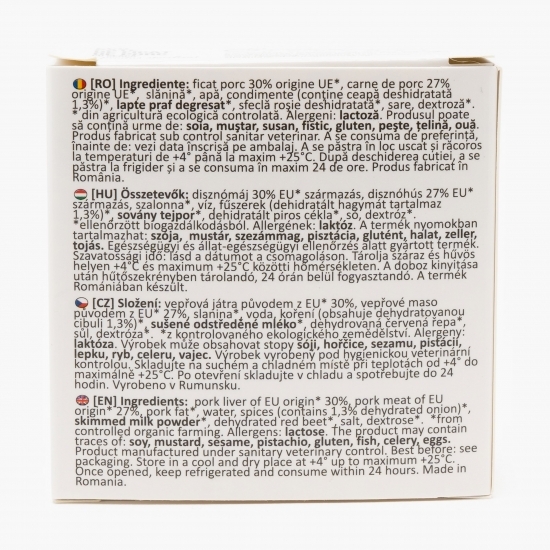 [RO] Ingrediente: ficat porc 30% origine UE*, carne de porc 27%
origine UE*, slănină*, apă, condimente (conține ceapă deshidratată
1,3%)*, lapte praf degresat*, sfeclă roșie deshidratată*, sare, dextroză*.
* din agricultură ecologică controlată. Alergeni: lactoză. Produsul poate
să conțină urme de: soia, muștar, susan, fistic, gluten, pește, țelină, ouă.
Produs fabricat sub control sanitar veterinar. A se consuma de preferință,
înainte de: vezi data înscrisă pe ambalaj. A se păstra în loc uscat și răcoros
la temperaturi de +4° până la maxim +25°C. După deschiderea cutiei, a se
păstra la frigider și a se consuma în maxim 24 de ore. Produs fabricat în
România.
[HU] Összetevők: disznómáj 30% EU* származás, disznóhús 27% EU*
származás, szalonna*, víz, fűszerek (dehidratált hagymát tartalmaz
1,3%)*, sovány tejpor*, dehidratált piros cékla*, só, dextróz*.
*ellenőrzött biogazdálkodásból. Allergének: laktóz. A termék nyomokban
tartalmazhat: szója, mustár, szezámmag, pisztácia, glutént, halat, zeller,
tojás. Egészségügyi és állat-egészségügyi ellenőrzés alatt gyártott termék.
Szavatossági idő: lásd a dátumot a csomagoláson. Tárolja száraz és hűvös
helyen +4°C és maximum +25°C közötti hőmérsékleten. A doboz kinyitása
után hűtőszekrényben tárolandó, 24 órán belül fogyasztandó. A termék
Romániában készült.
[CZ] Složení: vepřová játra původem z EU* 30%, vepřové maso
původem z EU* 27%, slanina*, voda, koření (obsahuje dehydratovanou
cibuli 1,3%)*, sušené odstředěné mléko*, dehydrovaná červená řepa*,
sůl, dextróza*. *z kontrolovaného ekologického zemědělství. Alergeny:
laktóza. Výrobek může obsahovat stopy sóji, hořčice, sezamu, pistácií,
lepku, ryb, celeru, vajec. Výrobek vyrobený pod hygienickou veterinární
kontrolou. Skladujte na suchém a chladném místě při teplotách od +4° do
maximálně +25°C. Po otevření skladujte v chladu a spotřebujte do 24
hodin. Vyrobeno v Rumunsku.
[EN] Ingredients: pork liver of EU origin* 30%, pork meat of EU
origin* 27%, pork fat*, water, spices (contains 1,3% dehydrated onion)*,
skimmed milk powder*, dehydrated red beet*, salt, dextrose*. *from
controlled organic farming. Allergens: lactose. The product may contain
traces of: soy, mustard, sesame, pistachio, gluten, fish, celery, eggs.
Product manufactured under sanitary veterinary control. Best before: see
packaging. Store in a cool and dry place at +4° up to maximum +25°C.
Once opened, keep refrigerated and consume within 24 hours. Made in
Romania.